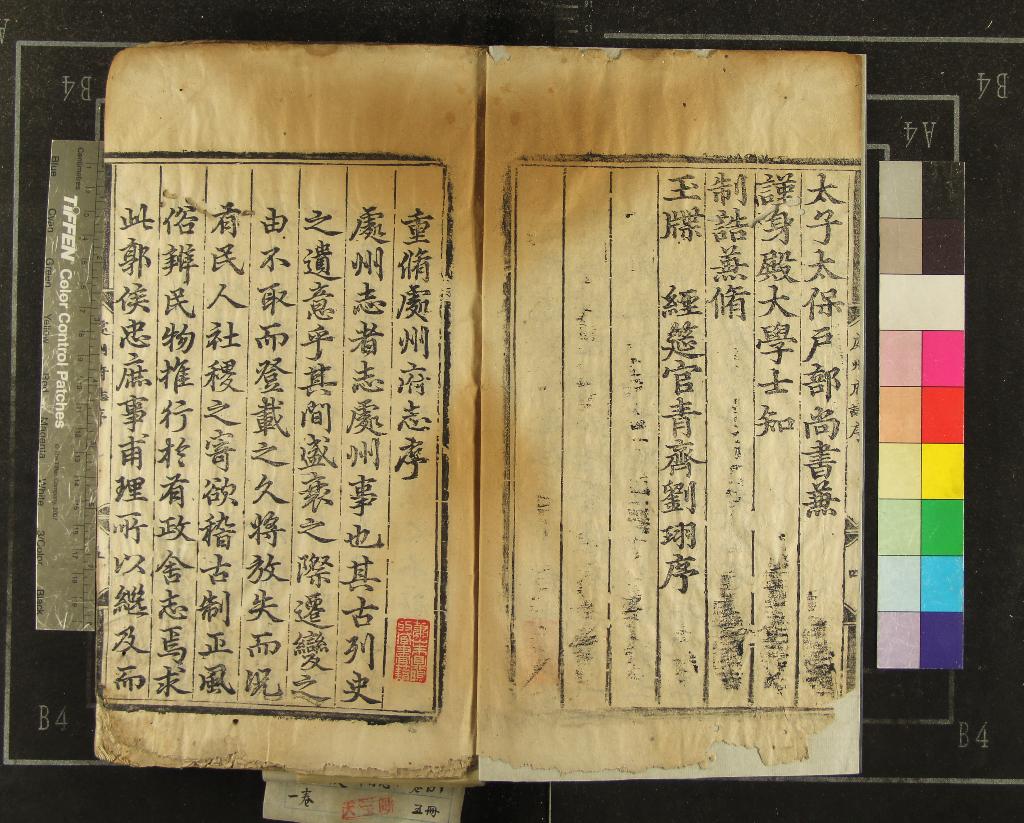 太子太保戶部尚書蕪
謹身殿大學士知
制誥蕪脩
玉牒 經筵官青齊劉珝序
重脩處州府志序
處州志者志處州事也其古列史
之遺意乎其間盛衰之際遷變之
由不取而登載之久將放失而況
有民人社稷之寄欲稽古制正風
俗辨民物推行於有政舍志焉求
此郭侯忠庶事甫理所以繼及而
TIFFEN Color Control Patches
Centimetres
Blue
Black
B4
B4
A4
B4
B4
一卷
五冊